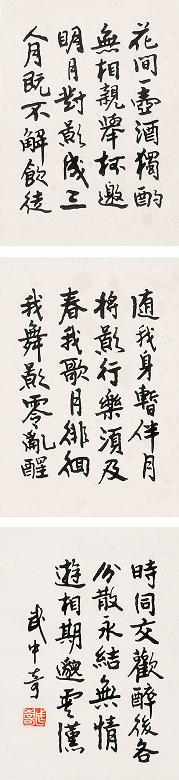 花間一壺酒獨酌
無相親舉杯邀
明月對影成三
人月既不解飲徒
随我身暫伴月
將影行樂須及
春我歌月徘徊
我舞影零亂醒
時同交歡醉後各
分散永結無情
遊相期邈雲漢
武中奇